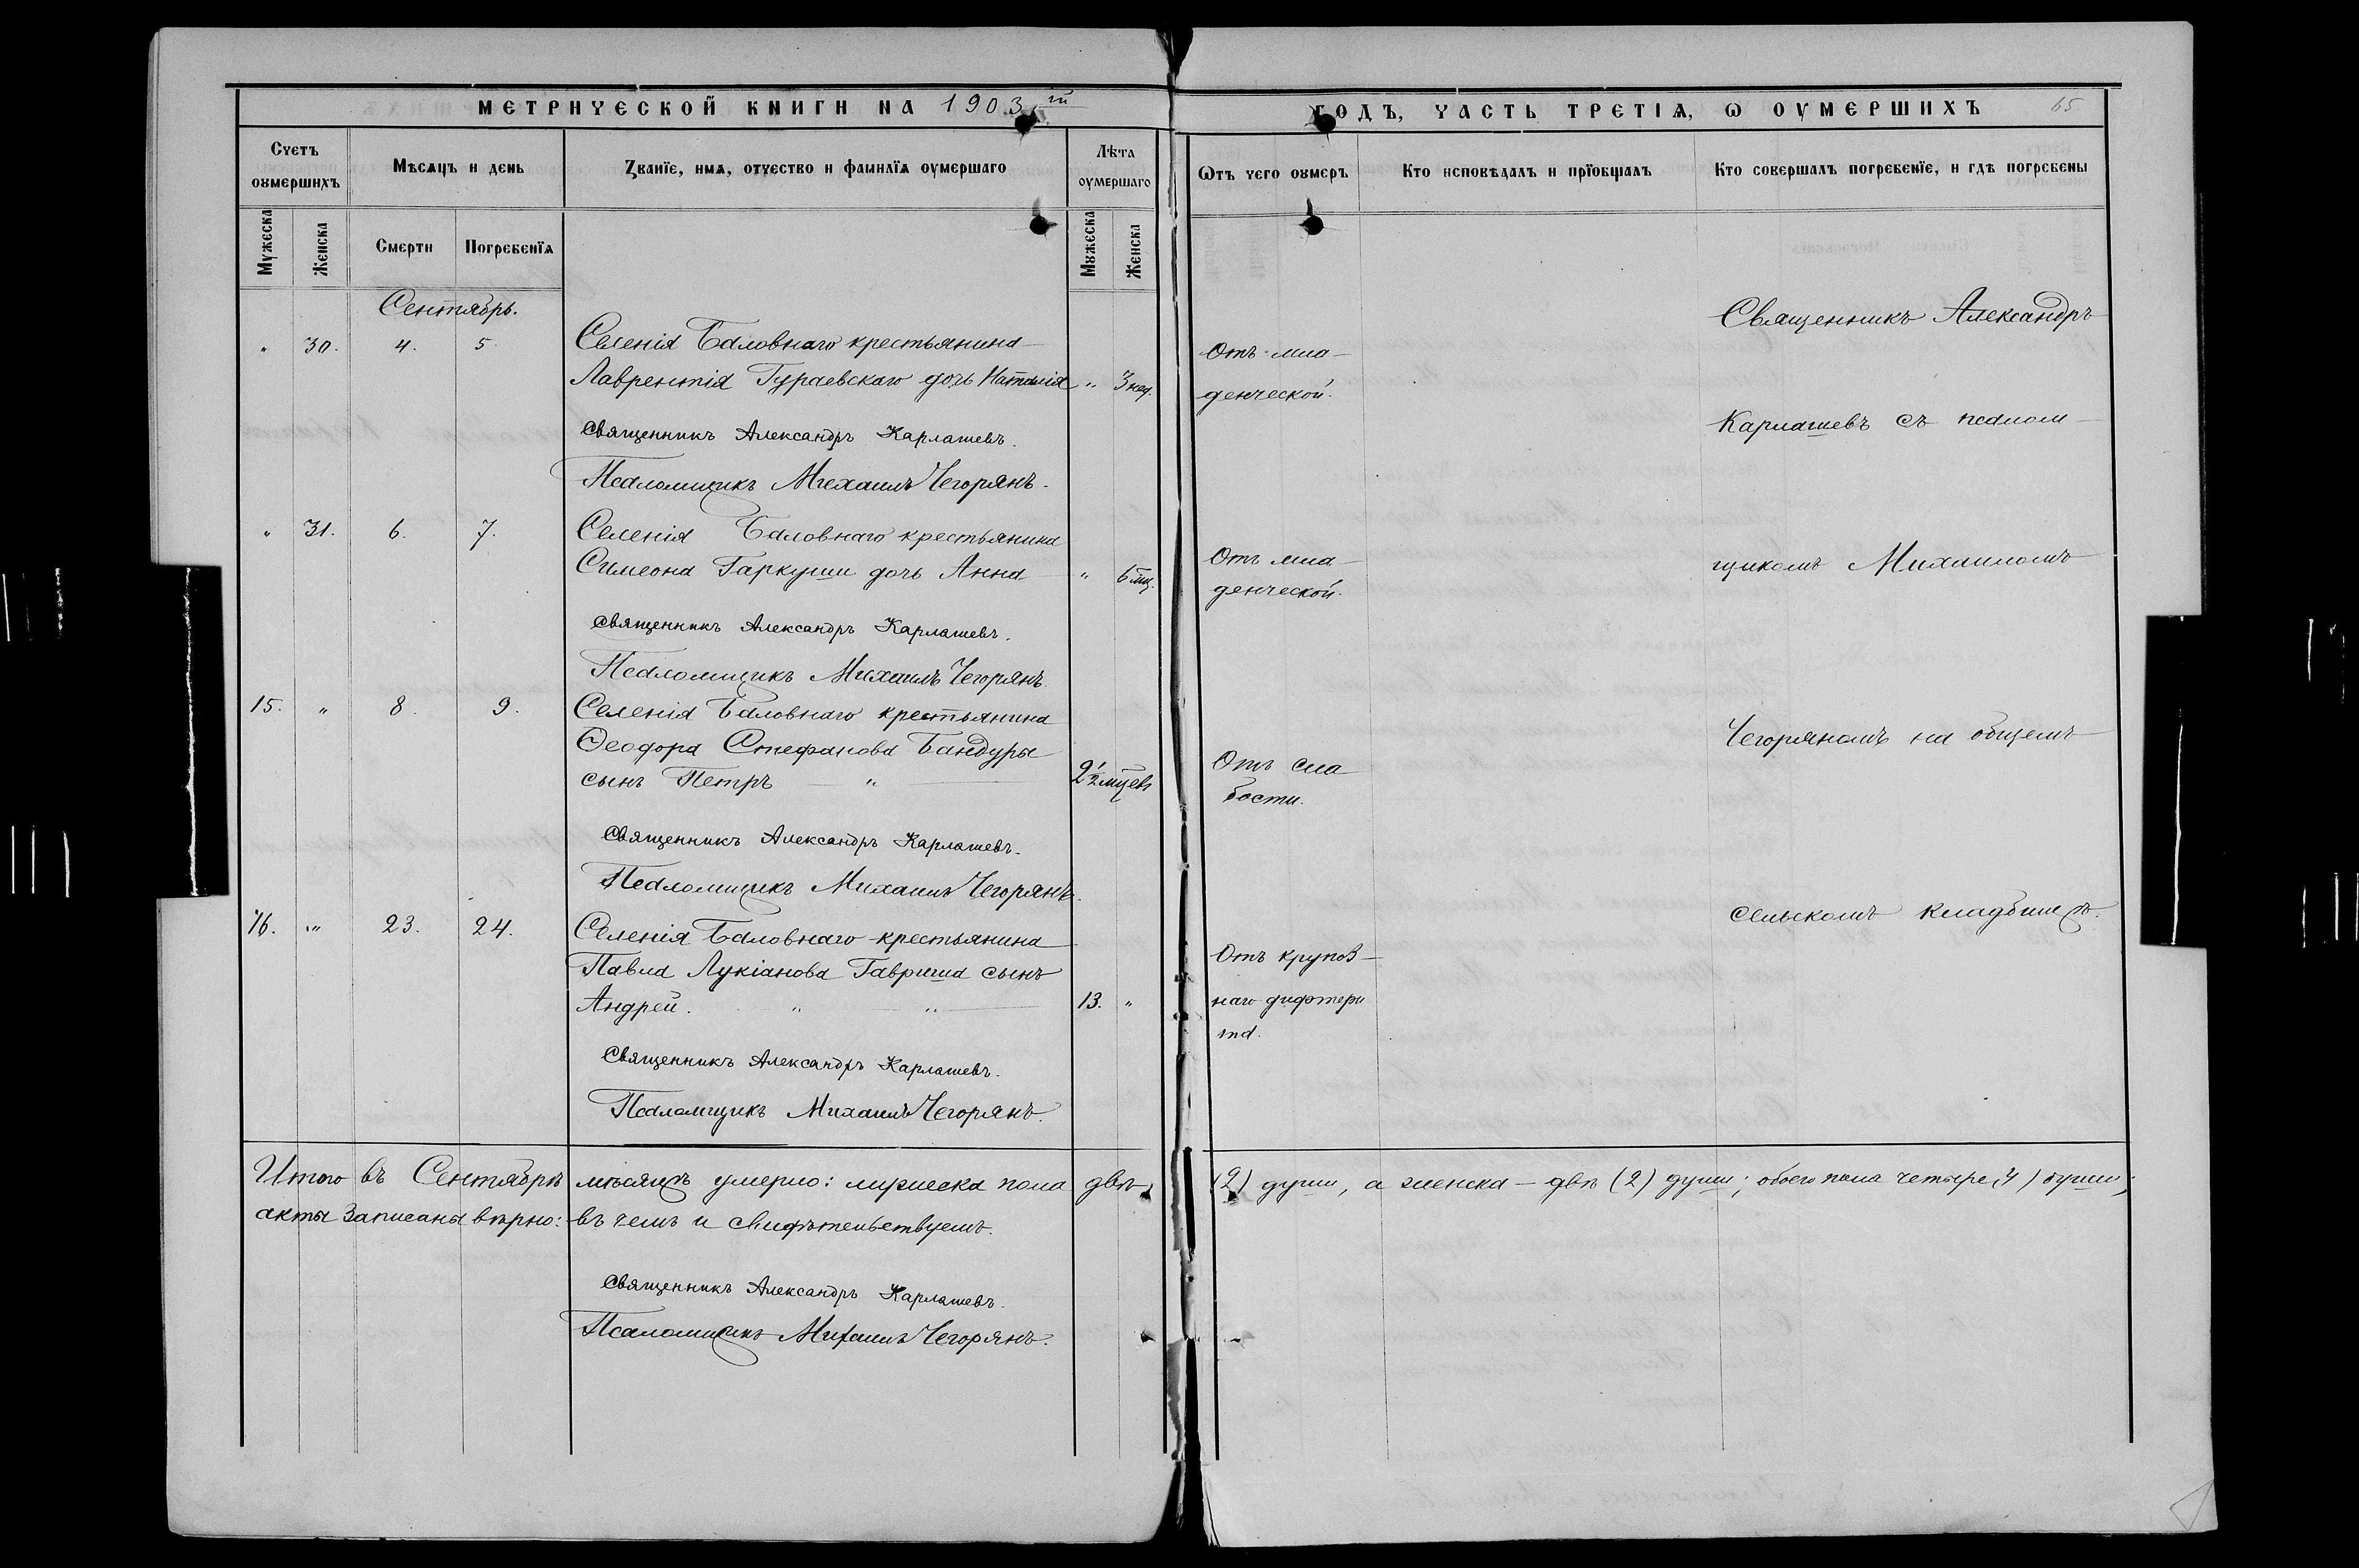 МЕТРИЧЕСКОЙ КНИГИ НА 1903 й ГОДЪ, ЧАСТЬ ТРЕТІѦ, Ѡ ОУМЕРШИХЪ 65
Счетъ оумершихъ
Мѣсѧцъ и день
Званїе, имѧ, отчество и фамилїѧ оумершаго
Лѣта оумершаго
Ѿтъ чего оумеръ
Кто исповѣдалъ и прїобщалъ
Кто совершалъ погребенїе, и гдѣ погребены
Мужеска
Женска
Смерти
Погребенїѧ
Мужеска
Женска
Сентябрь.
" 30. 4. 5 Селенія Баловнаго крестьянина
Лаврентія Гураевскаго дочь Наталія " 3 нед.
Отъ мла-
денческой.
Священникъ Александръ Карлашевъ.
Псаломщикъ Михаилъ Чегорянъ.
" 31. 6. 7. Селенія Баловнаго крестьянина
Симеона Гаркуши дочь Анна " 6 мц.
Отъ мла-
денческой.
Священникъ Александръ Карлашевъ.
Псаломщикъ Михаилъ Чегорянъ.
15. " 8. 9. Селенія Баловнаго крестьянина
Ѳеодора Стефанова Бандуры
сынъ Петръ " 2 1/2 мцевъ
Отъ сла
бости.
Священникъ Александръ Карлашевъ.
Псаломщикъ Михаилъ Чегорянъ.
16. " 23. 24. Селенія Баловнаго крестьянина
Павла Лукіанова Гавриша сынъ
Андрей. " " 13. "
Отъ крупоз-
наго дифтери
та.
Священникъ Александръ Карлашевъ.
Псаломщикъ Михаилъ Чегорянъ.
Священникъ Александръ
Карлашевъ съ псалом-
щикомъ Михаиломъ
Чегоряномъ на общемъ
сельскомъ кладбищѣ.
Итого въ Сентябрѣ мѣсяцѣ умерло: мужеска пола двѣ (2) души, а женска - двѣ (2) души; обоего пола четыре (4) души;
акты записаны вѣрно: въ чемъ и свидѣтельствуемъ.
Священникъ Александръ Карлашевъ.
Псаломщикъ Михаилъ Чегорянъ.